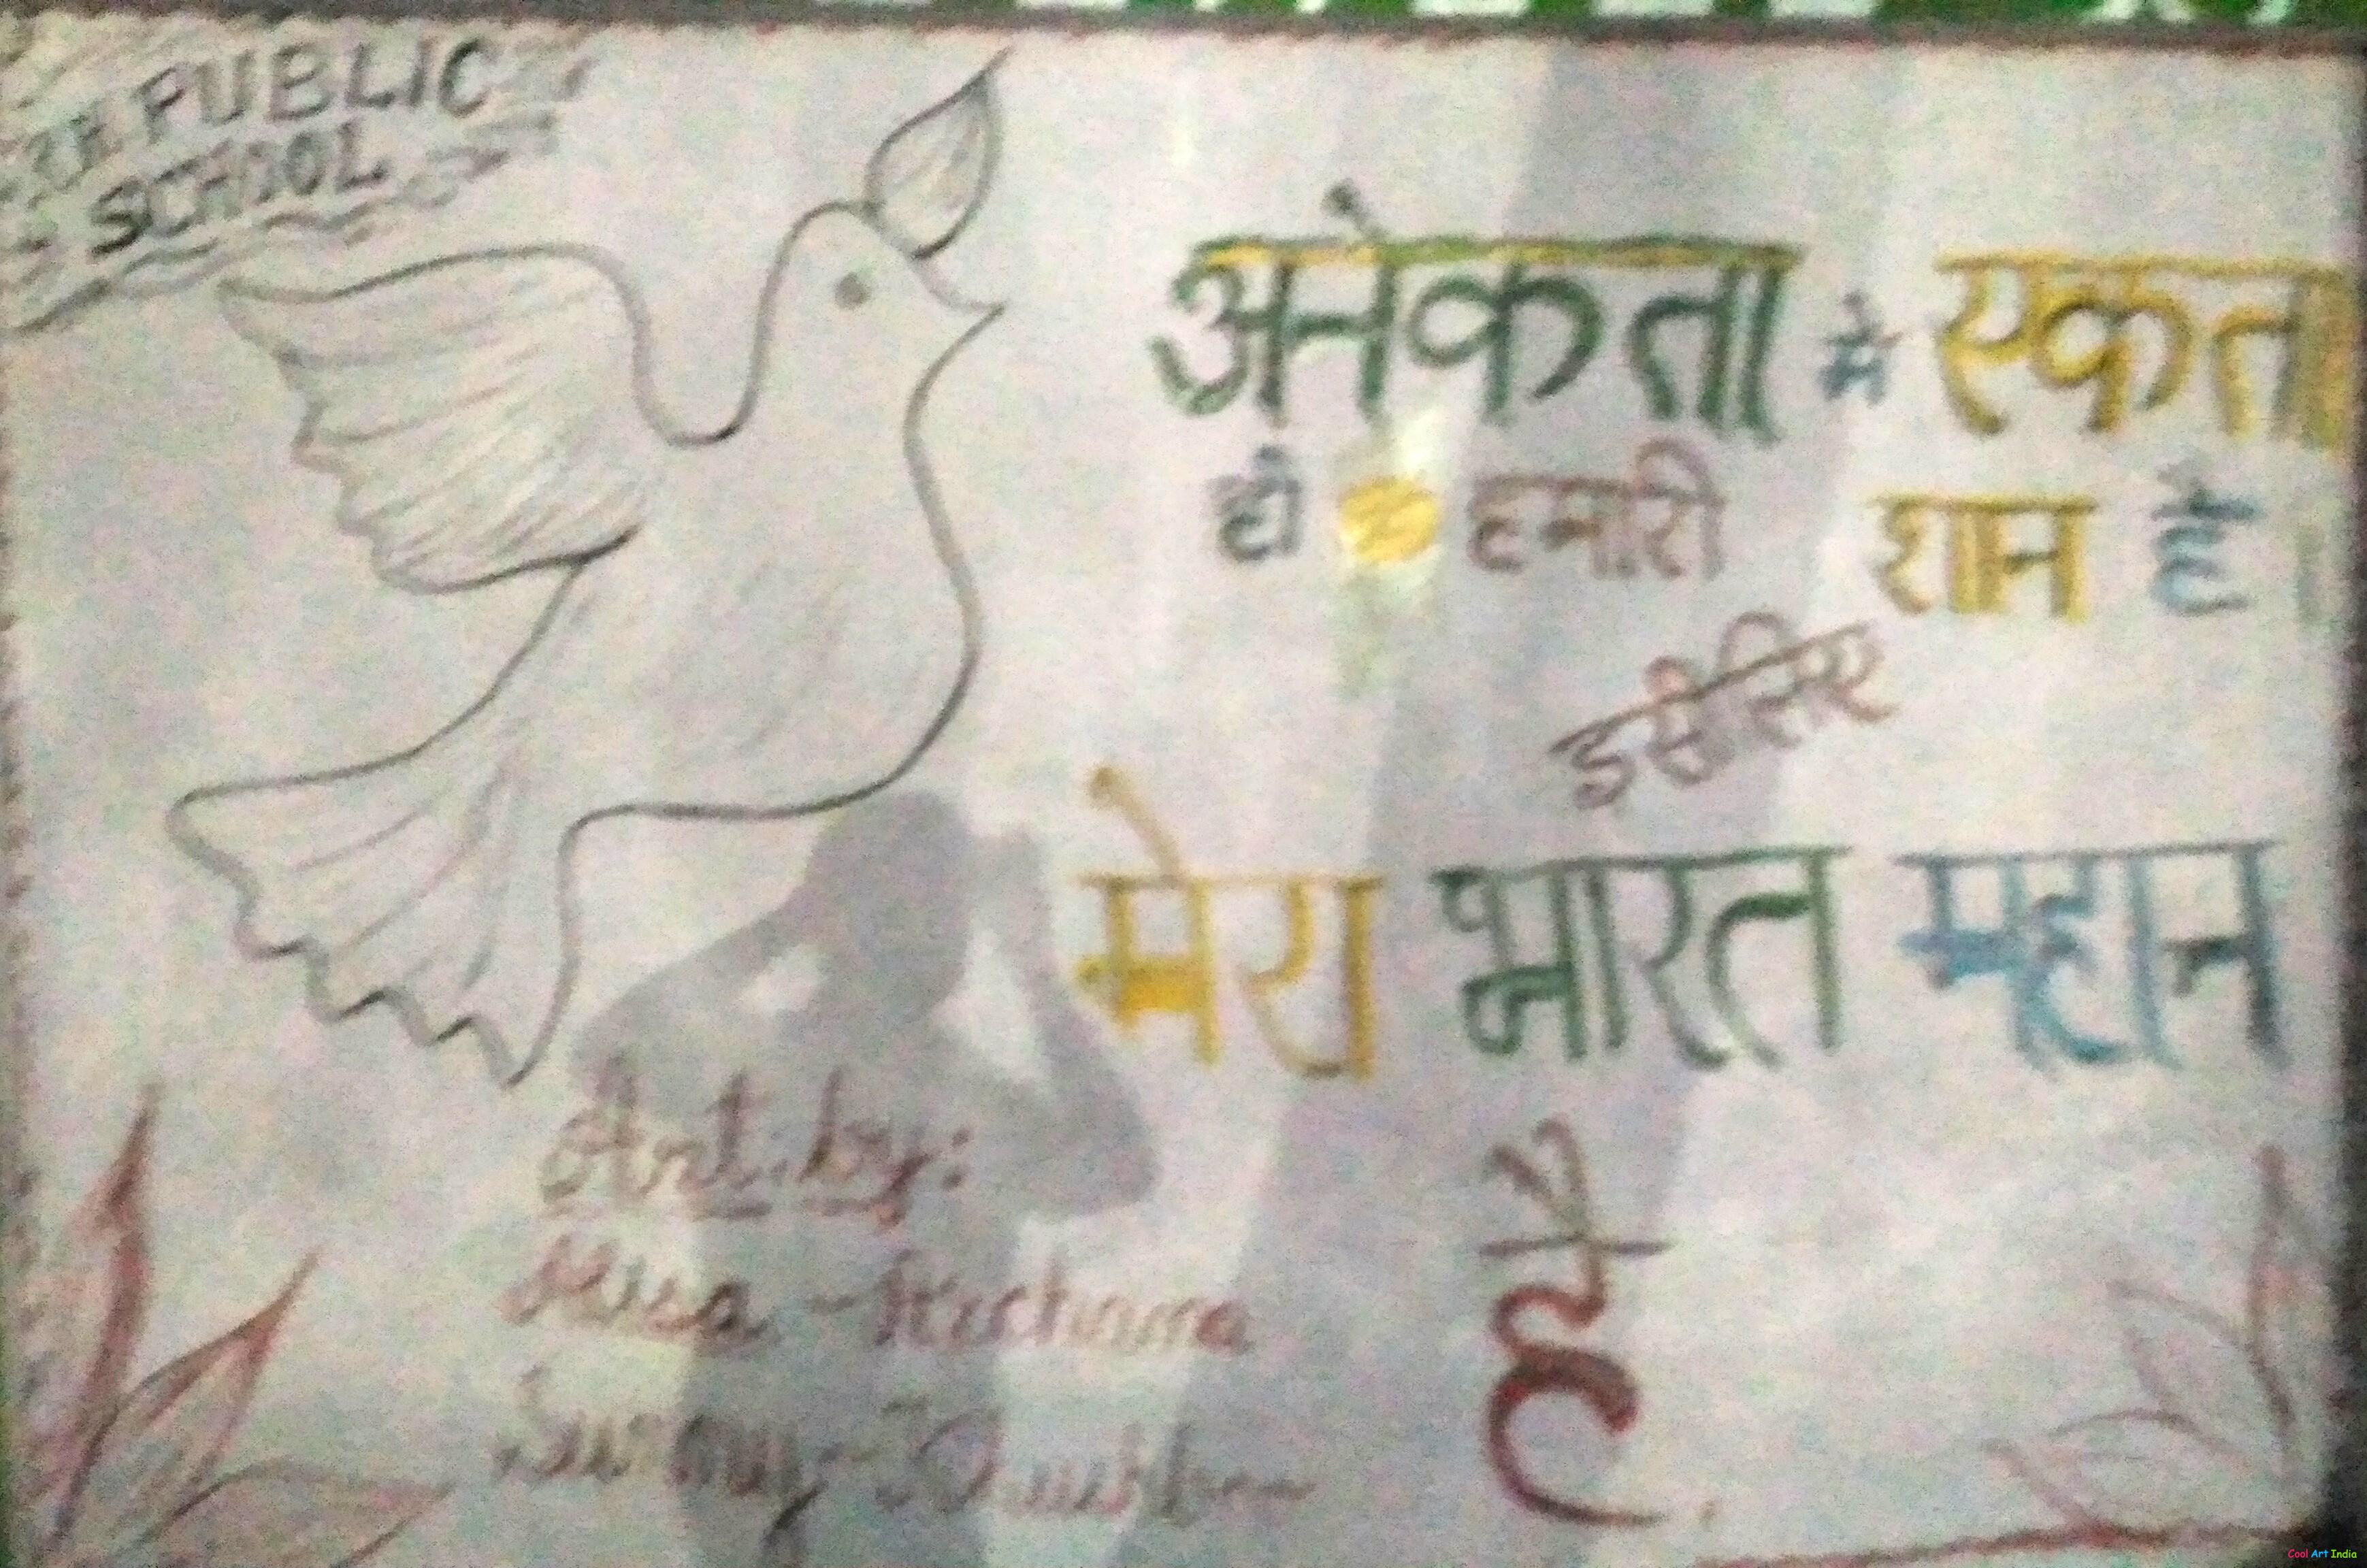 PUBLIC
SCHOOL
अनेकता में एकता
ही हमारी शान है।
इसीलिए
मेरा भारत महान
है.
Art by:
Sunny
Cool Art India